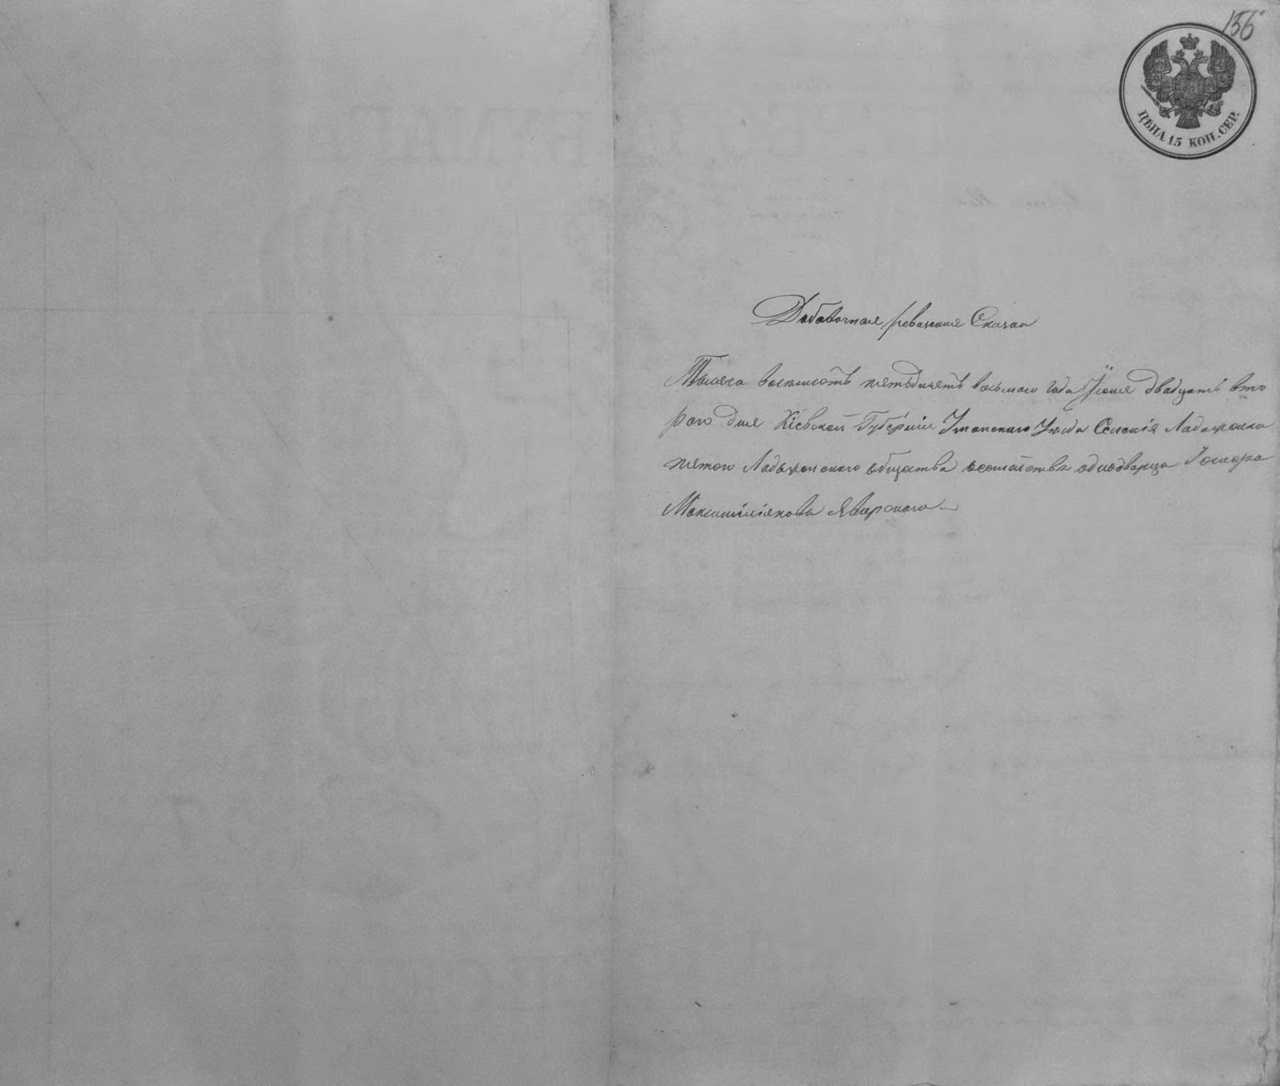 156
ЦѢНА 15 КОП. СЕР.
Добавочная ревизская Сказка
Тысяча восемьсотъ пятьдесятъ восьмаго года Іюня двадцать вто
раго дня Кіевской Губерніи Уманскаго Уѣзда Селенія Ладыжинки
пятой Ладыжинскаго общества однодворца
Максимиліанова Яворскаго